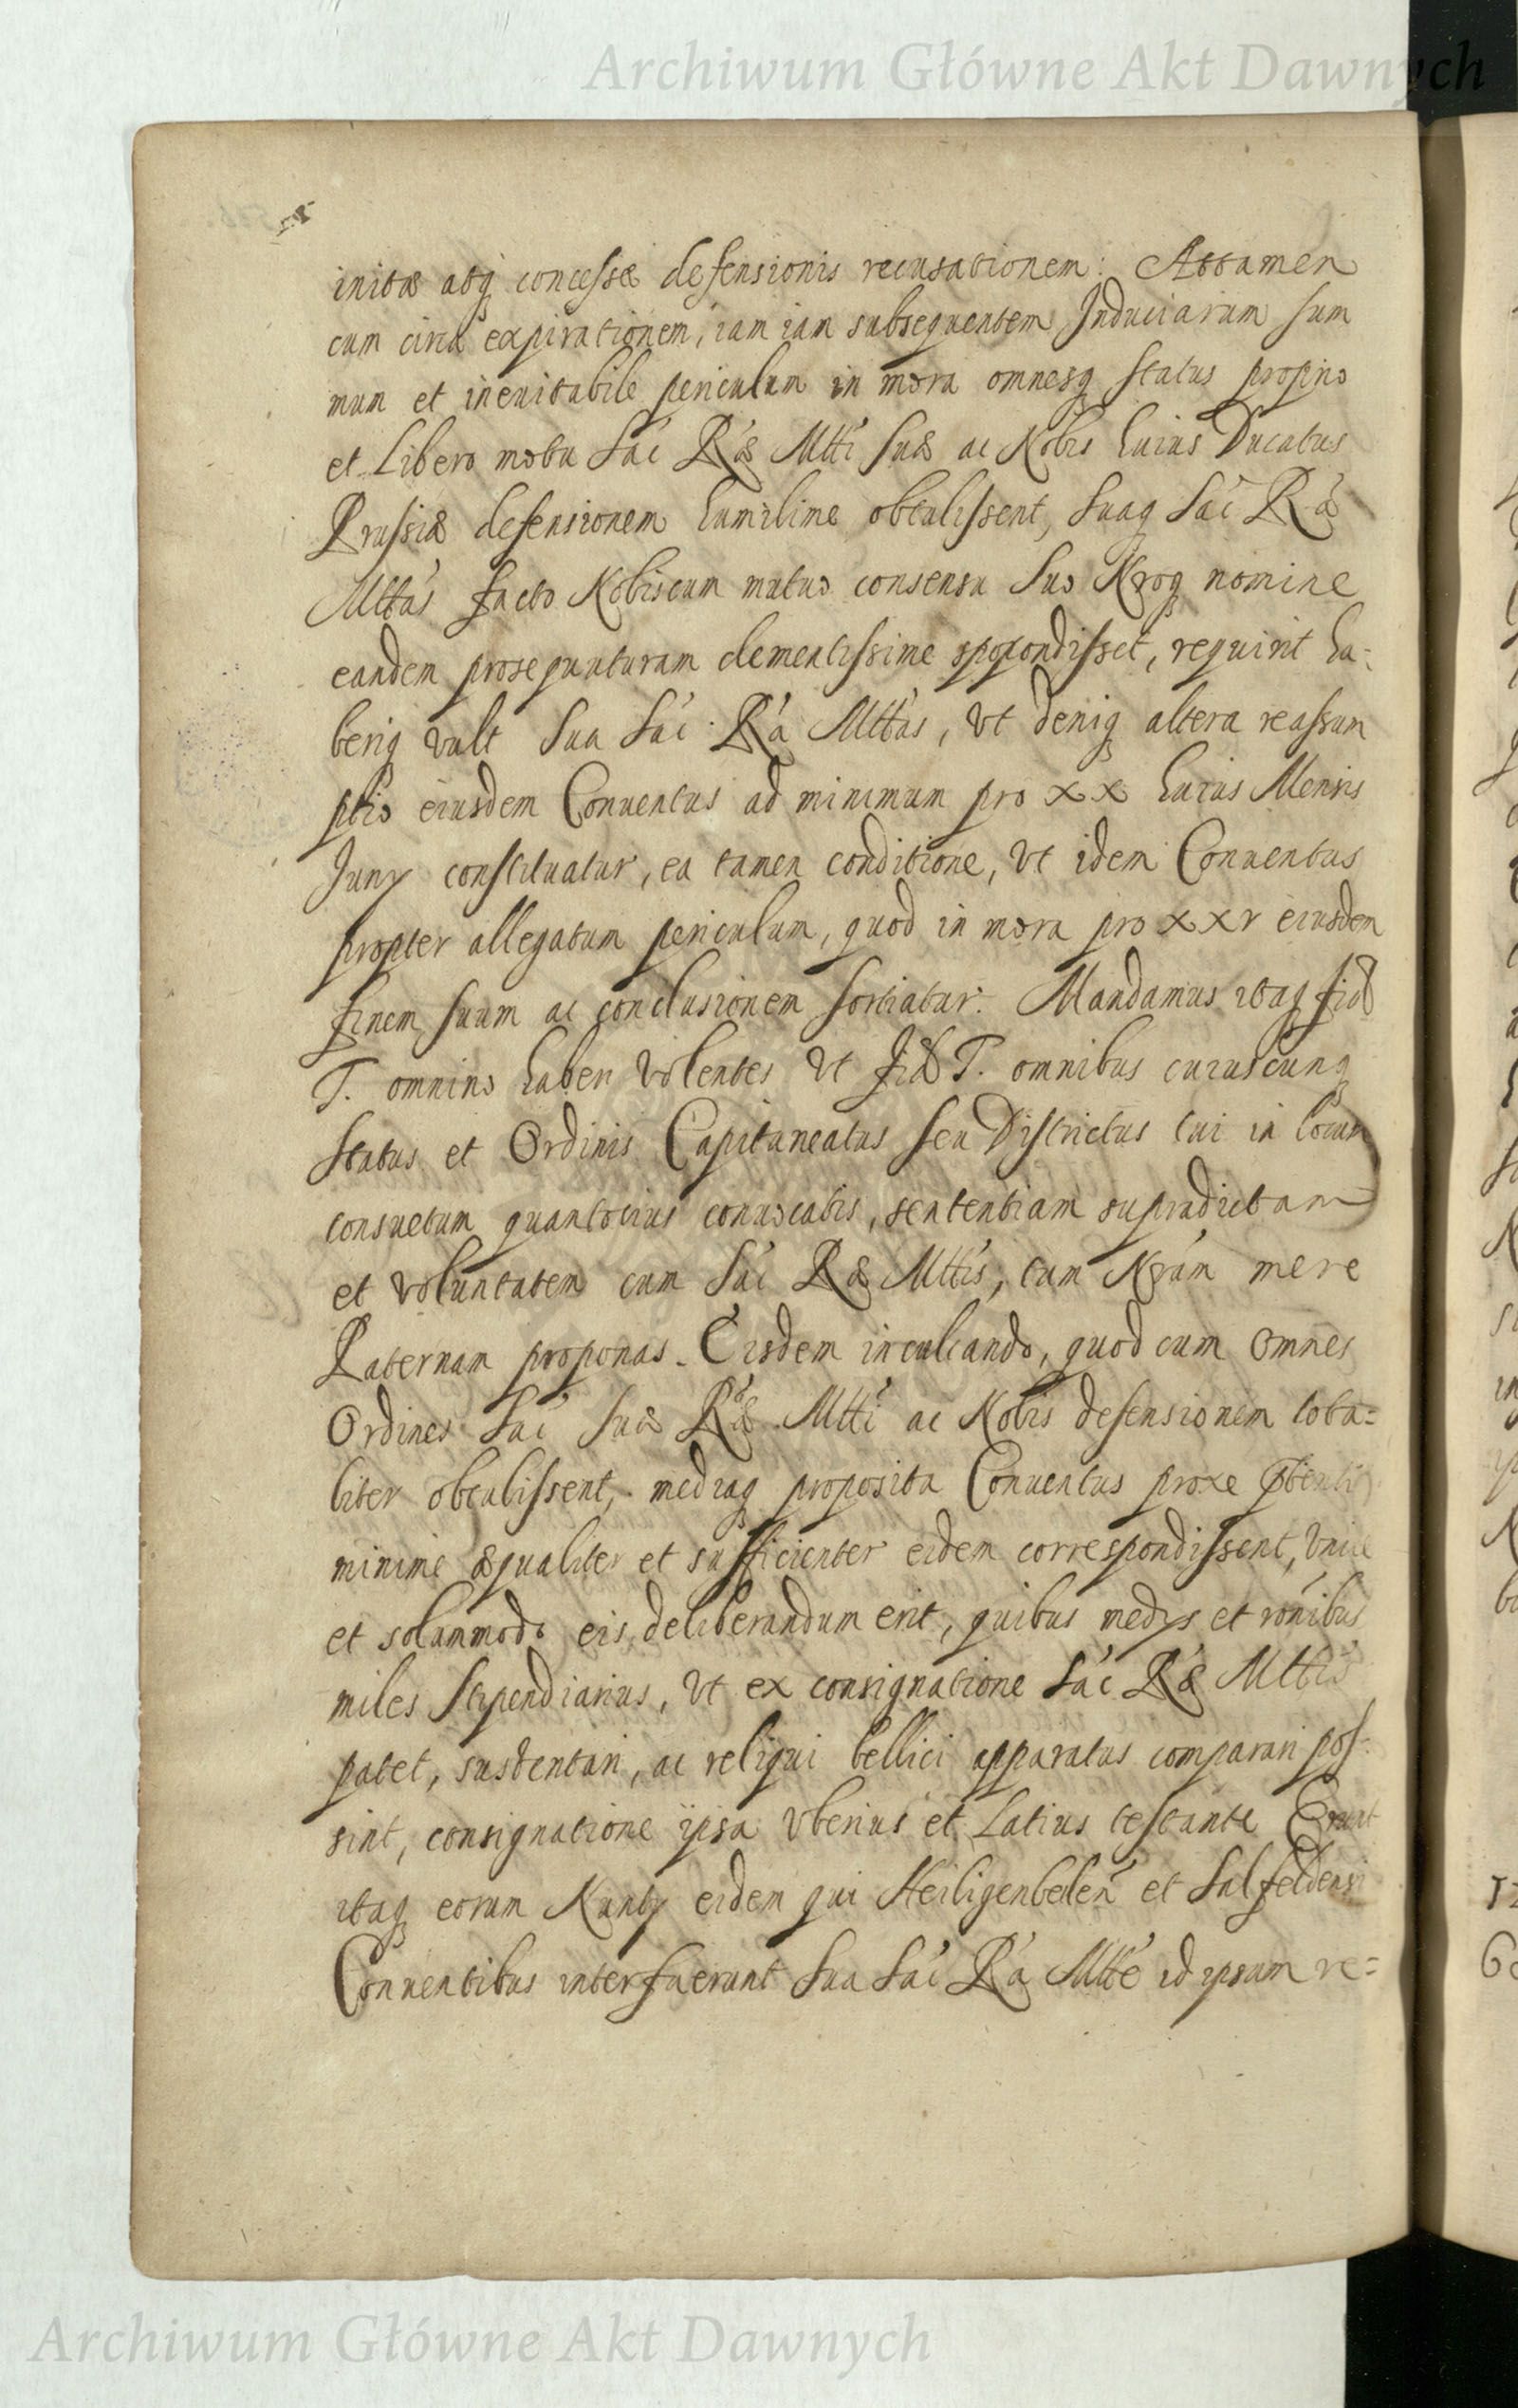 Archiwum Główne Akt Dawnych
initæ atq concessæ defensionis recusationem: Attamen
cum circa expirationem, iam iam subsequentem Induciarum sum
mum et ineuitabile periculum in mora omnesq status proprio
et Libero motu Sac Ræ Mtti suæ ac Nobis huius Ducatus
Prussiæ defensionem humilime obtulissent, suaq Sac Ra
Mttas facto Nobiscum mutuo consensu suo Nroq nomine
eandem prosequuturam clementissime spopondisset, requirit ha-
beriq vult Sua Sac Ra Mttas, vt deniq altera reassum
ptio eiusdem Conuentus ad minimum pro xx huius Mensis
Juny constituatur, ea tamen conditione, vt idem Conuentus
propter allegatum periculum, quod in mora pro xxv eiusdem
finem suum ac conclusionem sortiatur. Mandamus itaq fid
T. omnino haberi volentes vt fid T. omnibus cuiuscunq
status et Ordinis Capitaneatus seu Districtus tui in locum
consuetum quantocius conuocatis, sententiam supradictam
et voluntatem cum Sac Ræ Mttis, tum Nram mere
Paternam proponas. Eisdem inculcando, quod cum omnes
Ordines Sac suæ Ræ Mtti ac Nobis defensionem tota=
liter obtulissent, mediaq proposita Conuentus proxe
minime æqualiter et sufficienter eidem correspondissent, vnice
et solummodo eis deliberandum erit, quibus medys et ronibus
miles stipendiarius, vt ex consignatione Sac Ræ Mttis
patet, sustentari, ac reliqui bellici apparatus comparari pos-
sint, consignatione ipsa vberius et Latius testante Erunt
itaq eorum Nunty eidem qui Heiligenbelen et Salfeldensi
Conuentibus interfuerunt Sua Sac Ra Mtte id ipsum re=
Archiwum Główne Akt Dawnych